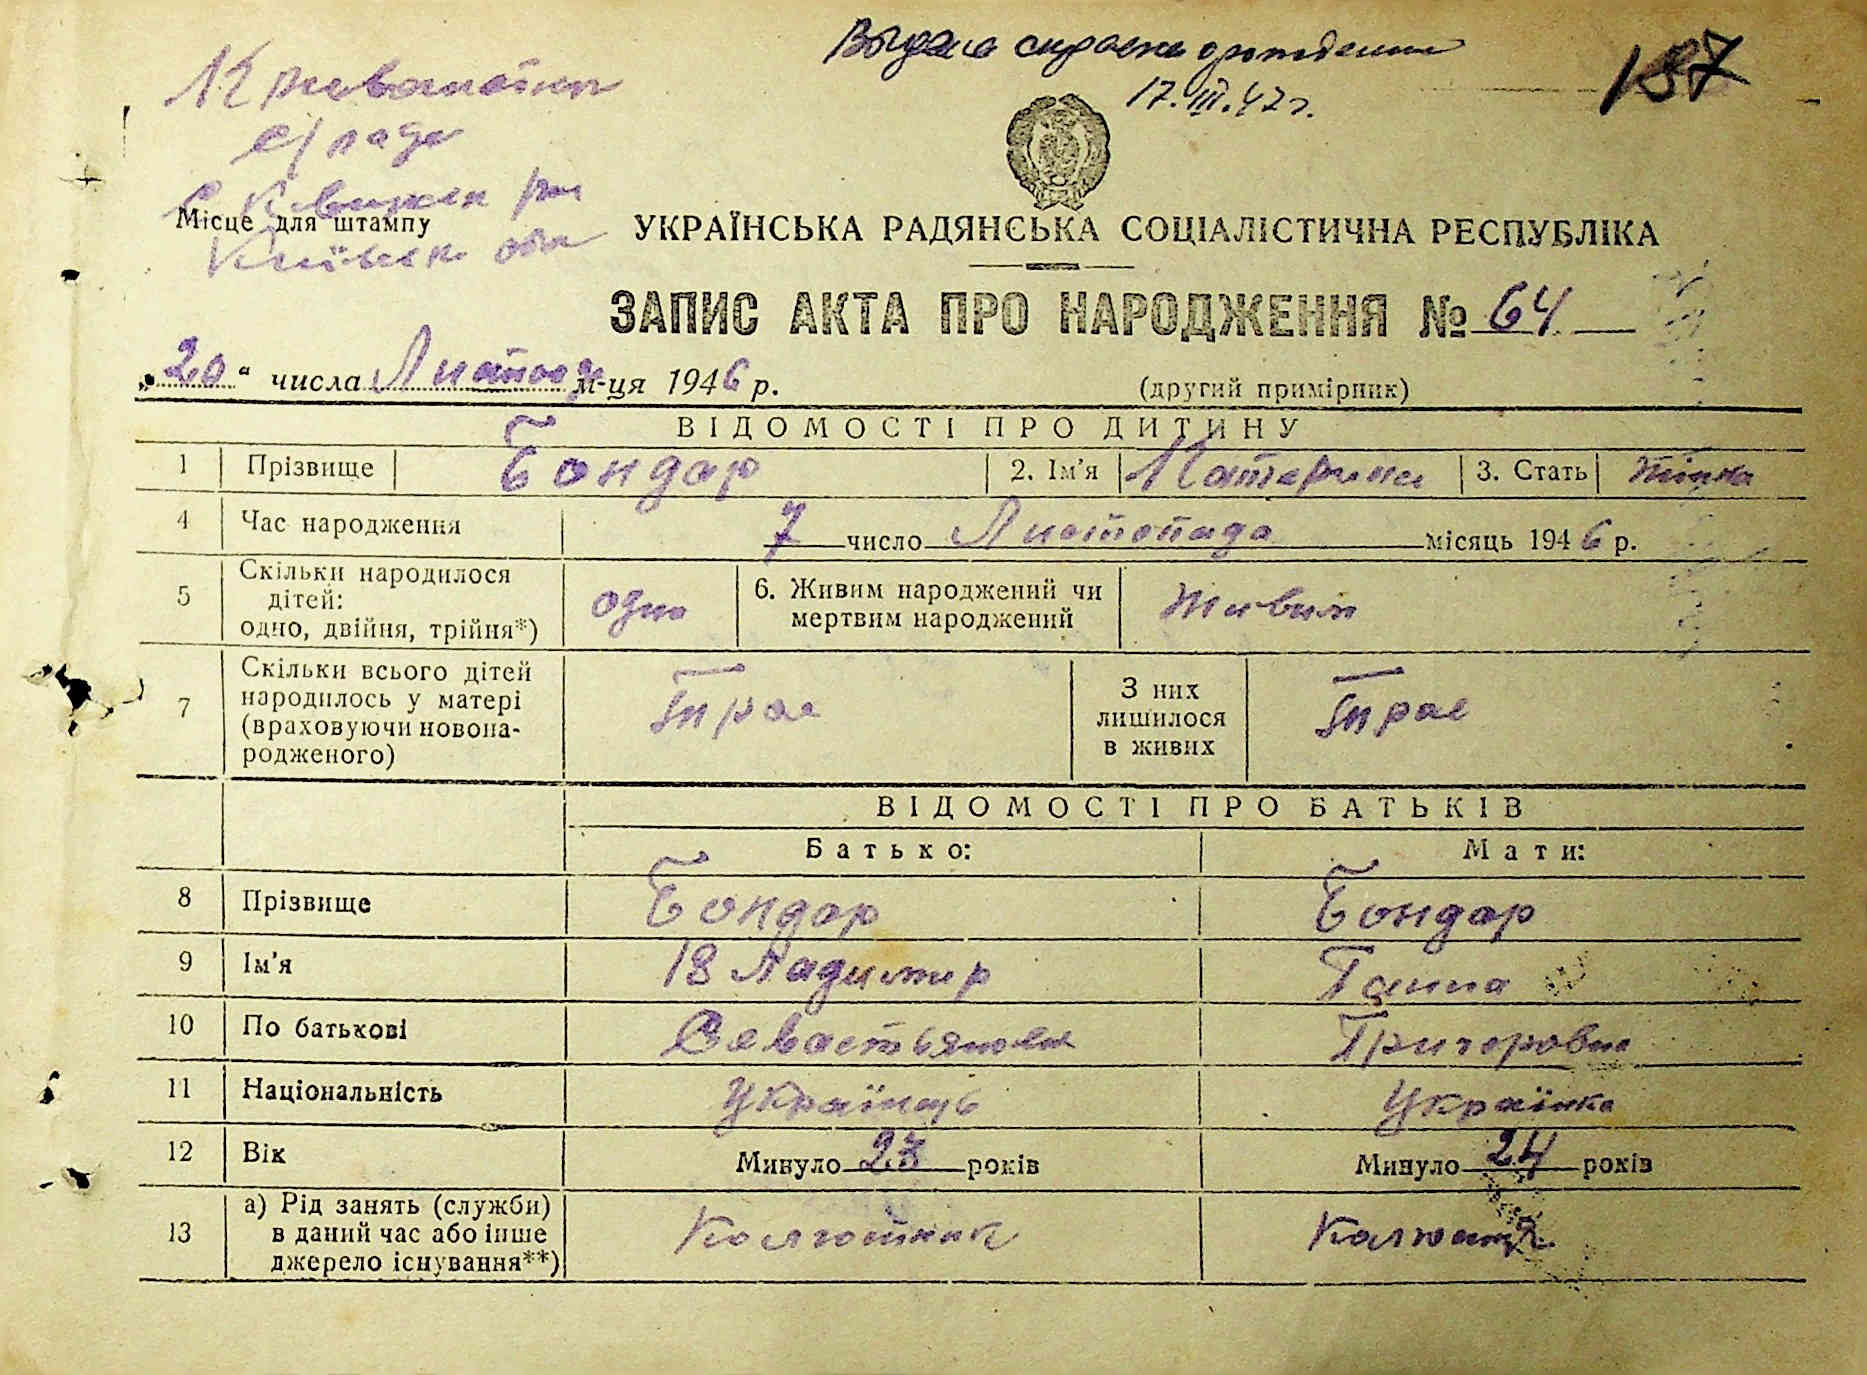 Выдана справка о рождении
17.III.47 г.
187
с/рада
Київськ обл
Місце для штампу
УКРАЇНСЬКА РАДЯНСЬКА СОЦІАЛІСТИЧНА РЕСПУБЛІКА
ЗАПИС АКТА ПРО НАРОДЖЕННЯ № 64
„20“ числа Листопад м-ця 1946 р. (другий примірник)
ВІДОМОСТІ ПРО ДИТИНУ
1 Прізвище Бондар 2. Ім'я Катерина 3. Стать жіноча
4 Час народження 7 число Листопада місяць 1946 р.
5 Скільки народилося дітей: одно, двійня, трійня*) одно 6. Живим народжений чи мертвим народжений живим
7 Скільки всього дітей народилось у матері (враховуючи новонародженого) Трое З них лишилося в живих Трое
ВІДОМОСТІ ПРО БАТЬКІВ
Батько: Мати:
8 Прізвище Бондар Бондар
9 Ім'я Владимир Ганна
10 По батькові Севастьянович Григоровна
11 Національність Українць Українка
12 Вік Минуло 23 років Минуло 24 років
13 а) Рід занять (служби) в даний час або інше джерело існування**) Колгоспник Колгоспця